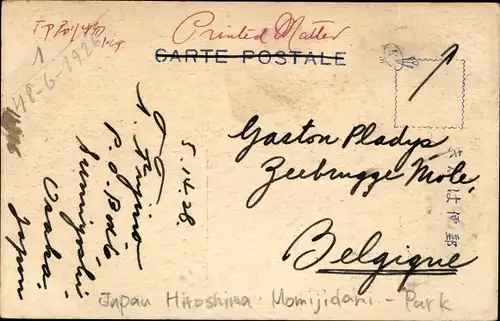 印刷物
Printed Matter
CARTE POSTALE
1
18-6-1926
5.14.26.
T. Fujino
P. O. Box 6
Sumiyoshi
Osaka.
Japan
Gaston Pladys
Zeebrugge Môle,
Belgique
Japan Hiroshima Momijidani - Park